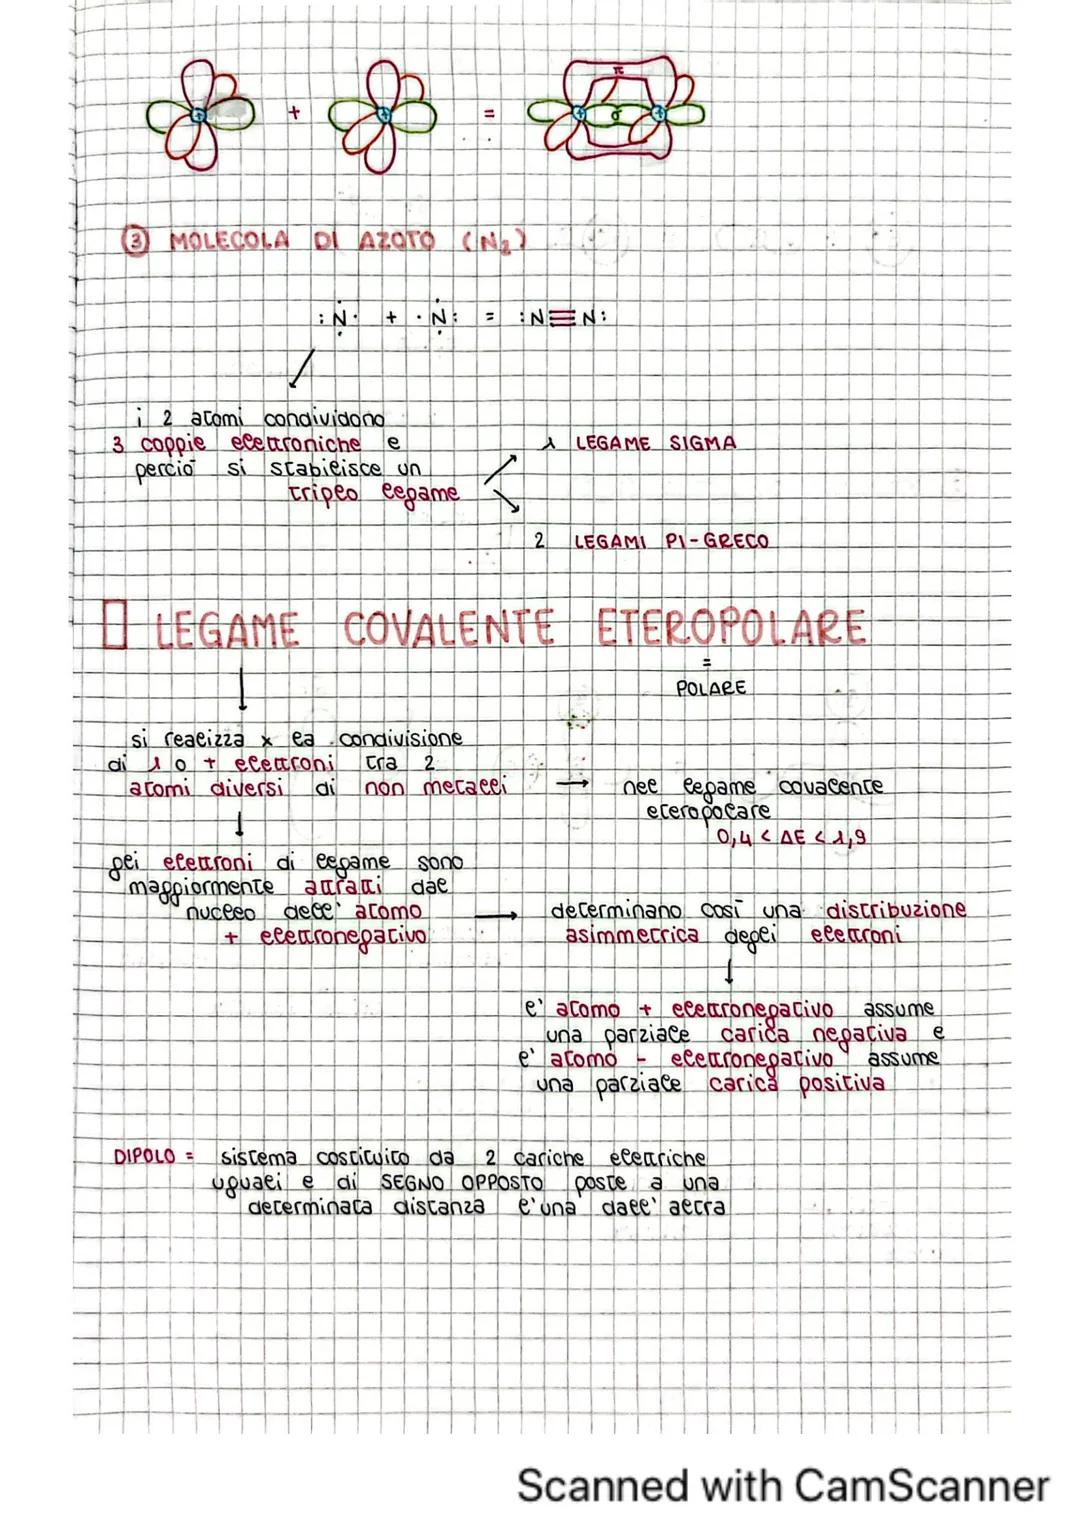 + =
π
σ
③ MOLECOLA DI AZOTO (N₂)
:Ṇ̇· + ·Ṇ̇: = :N≡N:
i 2 atomi condividono
3 coppie elettroniche e
perciò si stabilisce un
triplo legame
1 LEGAME SIGMA
2 LEGAMI PI-GRECO
LEGAME COVALENTE ETEROPOLARE
=
POLARE
si realizza x la condivisione
di 1 o + elettroni tra 2
atomi diversi di non metalli → nel legame covalente
eteropolare
0,4 < ΔE < 1,9
gli elettroni di legame sono
maggiormente attratti dal
nucleo dell' atomo
+ elettronegativo
→ determinano così una distribuzione
asimmetrica degli elettroni
l' atomo + elettronegativo assume
una parziale carica negativa e
l' atomo - elettronegativo assume
una parziale carica positiva
DIPOLO = sistema costituito da 2 cariche elettriche
uguali e di SEGNO OPPOSTO poste a una
determinata distanza l'una dall' altra
Scanned with CamScanner